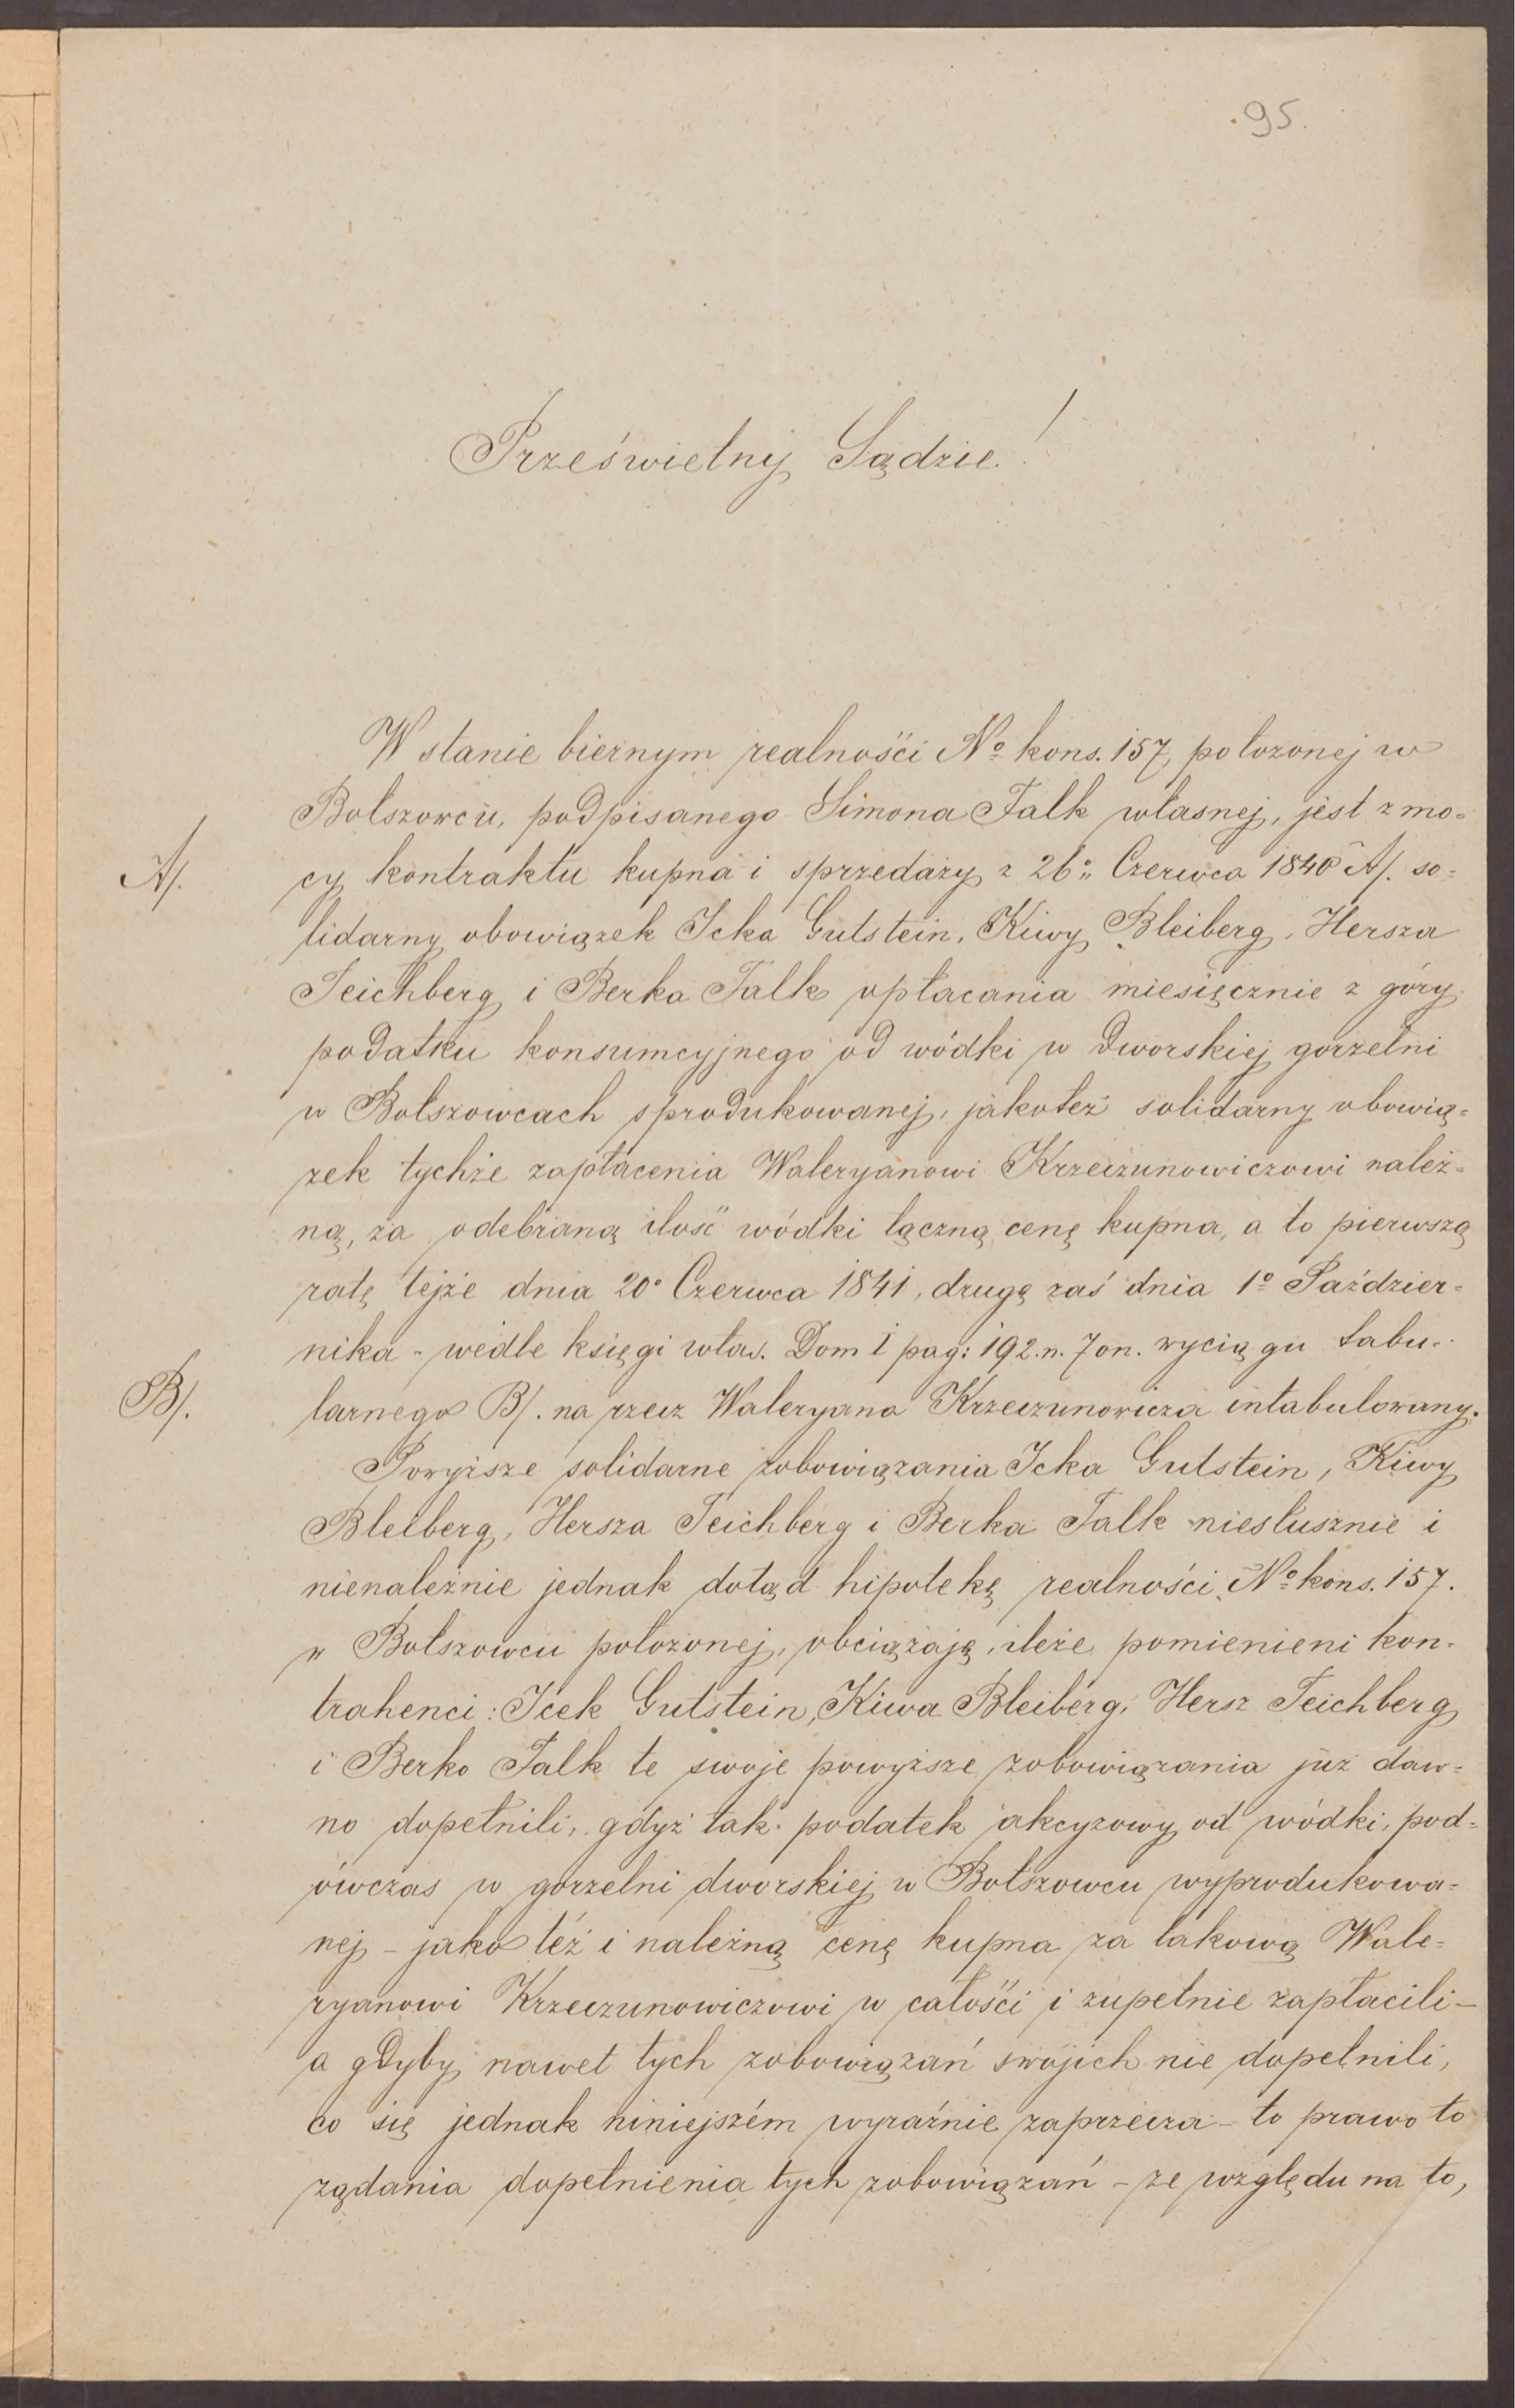 95.
Prześwietny Sądzie!
W stanie biernym realności No kons. 157, położonej w
Bołszowcu, podpisanego Simona Falk własnej, jest z mo=
A/.
cy kontraktu kupna i sprzedaży z 26o Czerwca 1840 A/. so=
lidarny obowiązek Icka Gutstein, Kiwy Bleiberg, Hersza
Teichberg i Berka Falk opłacania miesięcznie z góry
podatku konsumcyjnego od wódki w dworskiej gorzelni
w Bołszowcach sprodukowanej, jakoteż solidarny obowią=
zek tychże zapłacenia Waleryanowi Krzeczunowiczowi należ=
ną, za odebraną ilość wódki łączną cenę kupna, a to pierwszą
ratę tejże dnia 20o Czerwca 1841, drugą zaś dnia 1o Paździer=
nika - wedle księgi włas. Dom I pag: 192. n. 7 on. wyciągu tabu=
B/.
larnego B/. na rzecz Waleryana Krzeczunowicza intabulowany.
Powyższe solidarne zobowiązania Icka Gutstein, Kiwy
Bleiberg, Hersza Teichberg i Berka Falk niesłusznie i
nienależnie jednak dotąd hipotekę realności No kons. 157.
w Bołszowcu położonej, obciążają, ileże pomienieni kon=
trahenci: Icek Gutstein, Kiwa Bleiberg, Hersz Teichberg
i Berko Falk te swoje powyższe zobowiązania już daw=
no dopełnili, gdyż tak podatek akcyzowy od wódki, pod=
ówczas w gorzelni dworskiej w Bołszowcu wyprodukowa=
nej - jako też i należną cenę kupna za takową Wale=
ryanowi Krzeczunowiczowi w całości i zupełnie zapłacili -
a gdyby nawet tych zobowiązań swojich nie dopełnili,
co się jednak niniejszém wyraźnie zaprzecza - to prawo to
rządania dopełnienia tych zobowiązań - ze względu na to,